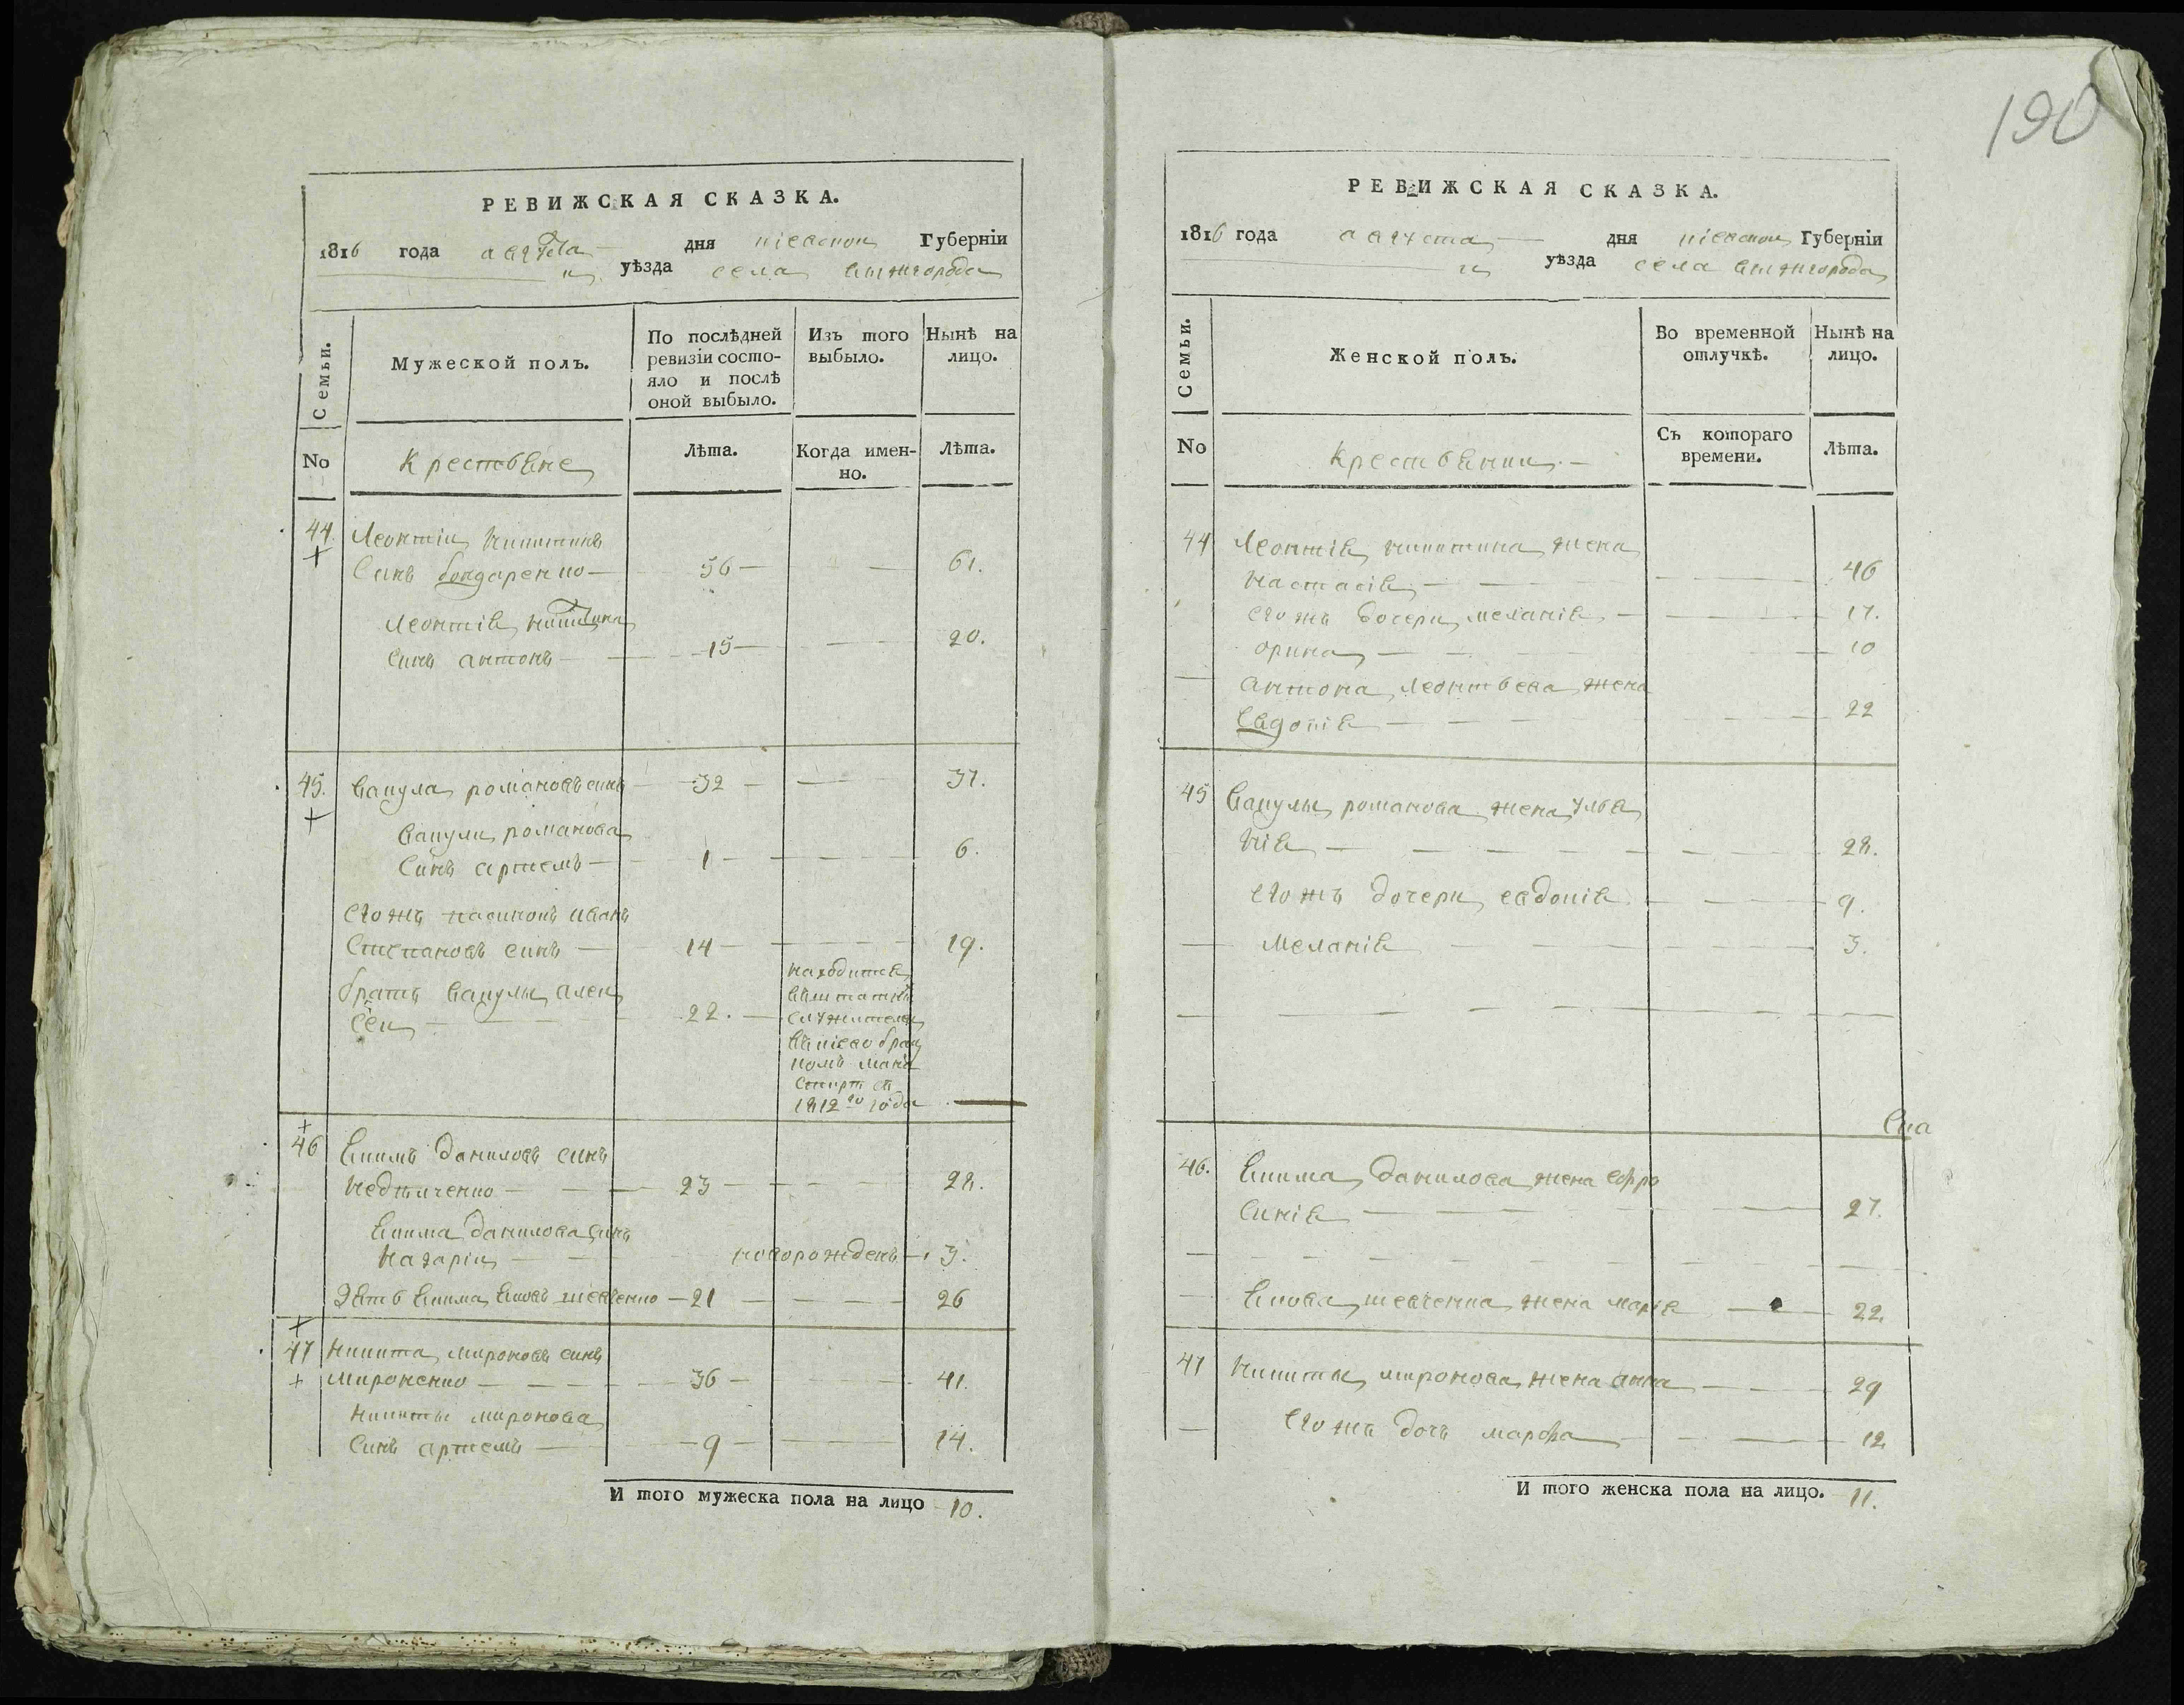 190
РЕВИЖСКАЯ СКАЗКА.
1816 года августа дня кіевской Губерніи
и уѣзда села вишгорода
Семьи.
Мужеской полъ.
По послѣдней ревизіи состо-
яло и послѣ
оной выбыло.
Изъ того
выбыло.
Нынѣ на
лицо.
No
Крестьяне
Лѣта.
Когда имен-
но.
Лѣта.
44. Леонтіи никитинъ
синъ бондаренко 56 61.
Леонтія никитина
синъ антонъ 15 20.
45. Вакула романовъ синъ 32 37.
Вакули романова
синъ артемъ 1 6.
Его жъ пасинокъ иванъ
Степановъ синъ 14 19.
братъ вакулы алек
сѣи 22.
находится
служителя
1812го года
46 Екимъ даниловъ синъ
23 28.
Екима данилова синъ
назаріи новорожденъ 3.
Зять екима яковъ шевченко 21 26
47 Никита мироновъ синъ
мироненко 36 41.
Никиты миронова
синъ артемъ 9 14.
И того мужеска пола на лицо 10.
РЕВИЖСКАЯ СКАЗКА.
1816 года августа дня кіевской Губерніи
и уѣзда села вишгорода
Семьи.
Женской полъ.
Во временной
отлучкѣ.
Нынѣ на
лицо.
No
Крестьянки
Съ котораго
времени.
Лѣта.
44 Леонтія никитина жена
настасія 46
его жъ дочери меланія 17.
орина 10
антона леонтьева жена
евдокія 22
45 Вакулы романова жена улья
нія 28.
его жъ дочери евдокія 9.
меланія 3.
46. Екима данилова жена ефро
синія 27.
якова шевченка жена марія 22.
47 Никиты миронова жена анна 29
его жъ дочь марфа 12
И того женска пола на лицо. 11.